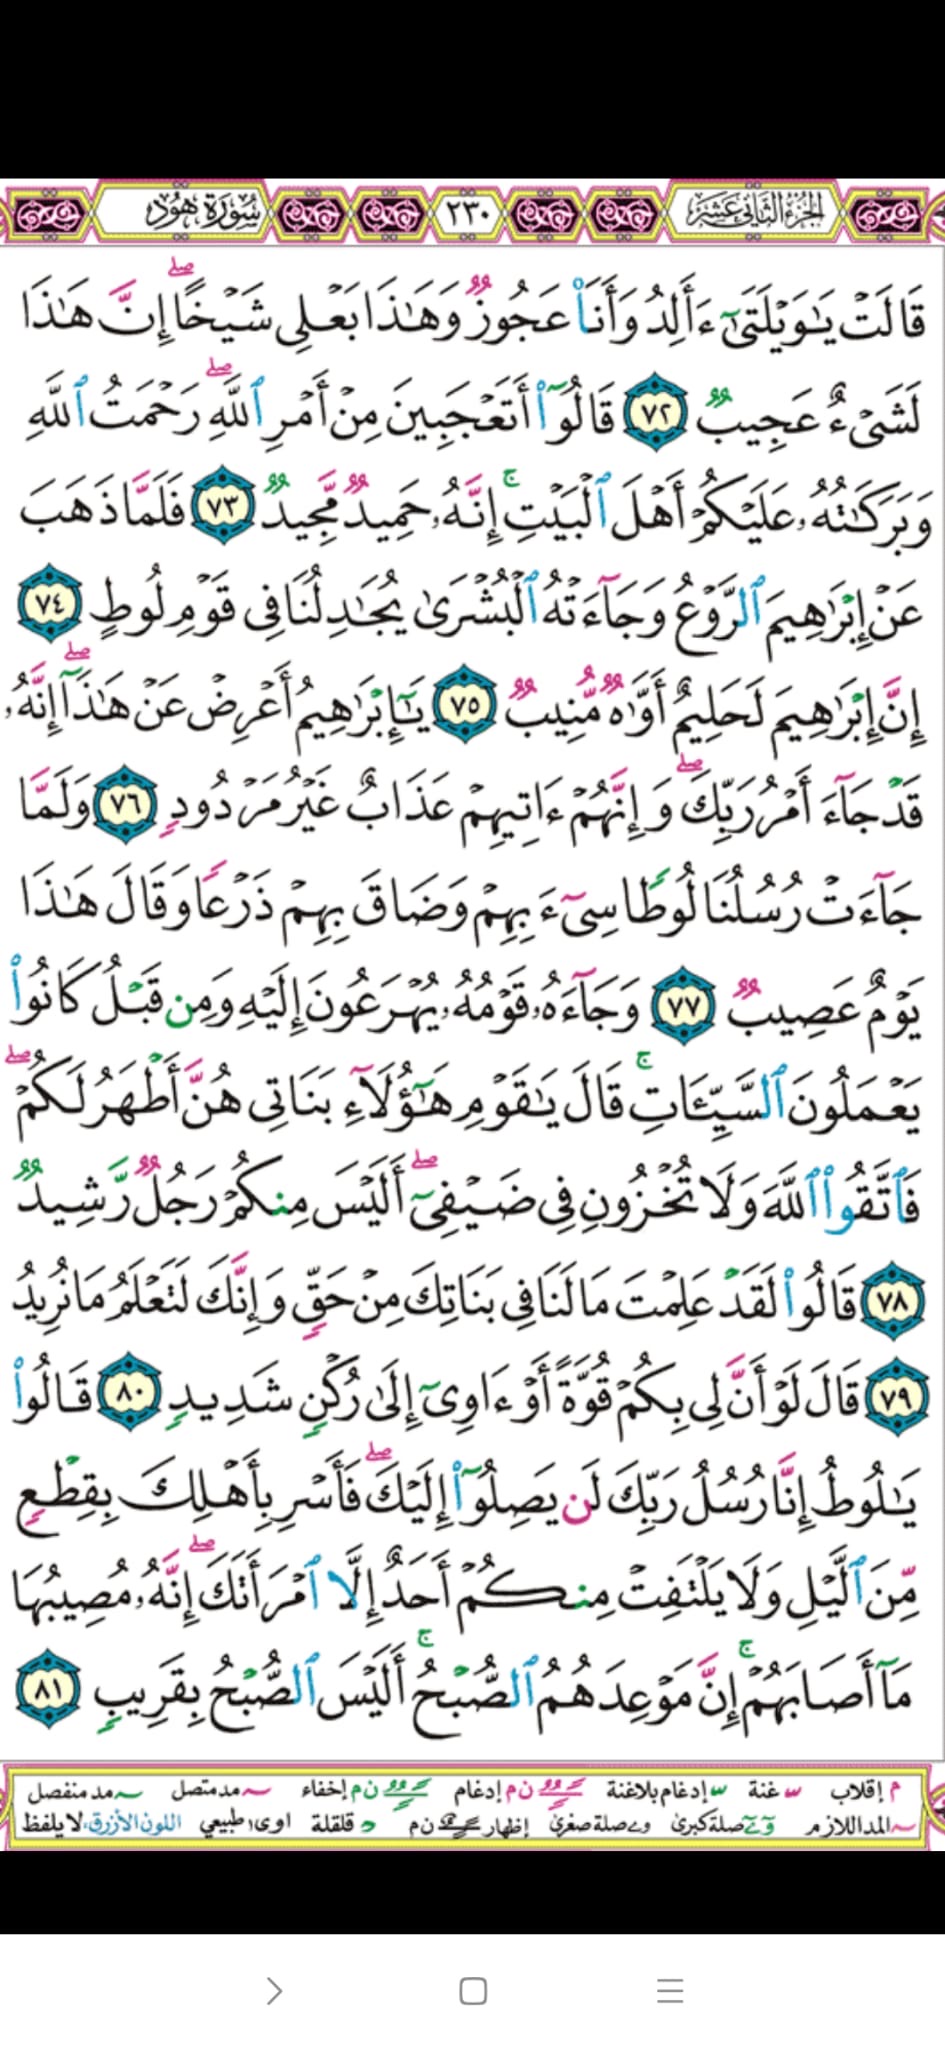 الجزء الثاني عشر ٢٣٠ سورة هود
قَالَتْ يَٰوَيْلَتَىٰٓ ءَأَلِدُ وَأَنَا۠ عَجُوزٌ وَهَٰذَا بَعْلِى شَيْخًا ۖ إِنَّ هَٰذَا
لَشَىْءٌ عَجِيبٌ ٧٢ قَالُوٓا۟ أَتَعْجَبِينَ مِنْ أَمْرِ ٱللَّهِ ۖ رَحْمَتُ ٱللَّهِ
وَبَرَكَٰتُهُۥ عَلَيْكُمْ أَهْلَ ٱلْبَيْتِ ۚ إِنَّهُۥ حَمِيدٌ مَّجِيدٌ ٧٣ فَلَمَّا ذَهَبَ
عَنْ إِبْرَٰهِيمَ ٱلرَّوْعُ وَجَآءَتْهُ ٱلْبُشْرَىٰ يُجَٰدِلُنَا فِى قَوْمِ لُوطٍ ٧٤
إِنَّ إِبْرَٰهِيمَ لَحَلِيمٌ أَوَّٰهٌ مُّنِيبٌ ٧٥ يَٰٓإِبْرَٰهِيمُ أَعْرِضْ عَنْ هَٰذَآ ۖ إِنَّهُۥ
قَدْ جَآءَ أَمْرُ رَبِّكَ ۖ وَإِنَّهُمْ ءَاتِيهِمْ عَذَابٌ غَيْرُ مَرْدُودٍ ٧٦ وَلَمَّا
جَآءَتْ رُسُلُنَا لُوطًا سِىٓءَ بِهِمْ وَضَاقَ بِهِمْ ذَرْعًا وَقَالَ هَٰذَا
يَوْمٌ عَصِيبٌ ٧٧ وَجَآءَهُۥ قَوْمُهُۥ يُهْرَعُونَ إِلَيْهِ وَمِن قَبْلُ كَانُوا۟
يَعْمَلُونَ ٱلسَّيِّـَٔاتِ ۚ قَالَ يَٰقَوْمِ هَٰٓؤُلَآءِ بَنَاتِى هُنَّ أَطْهَرُ لَكُمْ ۖ
فَٱتَّقُوا۟ ٱللَّهَ وَلَا تُخْزُونِ فِى ضَيْفِىٓ ۖ أَلَيْسَ مِنكُمْ رَجُلٌ رَّشِيدٌ
٧٨ قَالُوا۟ لَقَدْ عَلِمْتَ مَا لَنَا فِى بَنَاتِكَ مِنْ حَقٍّ وَإِنَّكَ لَتَعْلَمُ مَا نُرِيدُ
٧٩ قَالَ لَوْ أَنَّ لِى بِكُمْ قُوَّةً أَوْ ءَاوِىٓ إِلَىٰ رُكْنٍ شَدِيدٍ ٨٠ قَالُوا۟
يَٰلُوطُ إِنَّا رُسُلُ رَبِّكَ لَن يَصِلُوٓا۟ إِلَيْكَ ۖ فَأَسْرِ بِأَهْلِكَ بِقِطْعٍ
مِّنَ ٱلَّيْلِ وَلَا يَلْتَفِتْ مِنكُمْ أَحَدٌ إِلَّا ٱمْرَأَتَكَ ۖ إِنَّهُۥ مُصِيبُهَا
مَآ أَصَابَهُمْ ۚ إِنَّ مَوْعِدَهُمُ ٱلصُّبْحُ ۚ أَلَيْسَ ٱلصُّبْحُ بِقَرِيبٍ ٨١
م إقلاب غنة إدغام بلاغنة ن م إدغام ن م إخفاء مد متصل مد منفصل
المد اللازم صلة كبرى صلة صغرى إظهار ن م قلقلة اوى طبيعي اللون الأزرق، لا يلفظ